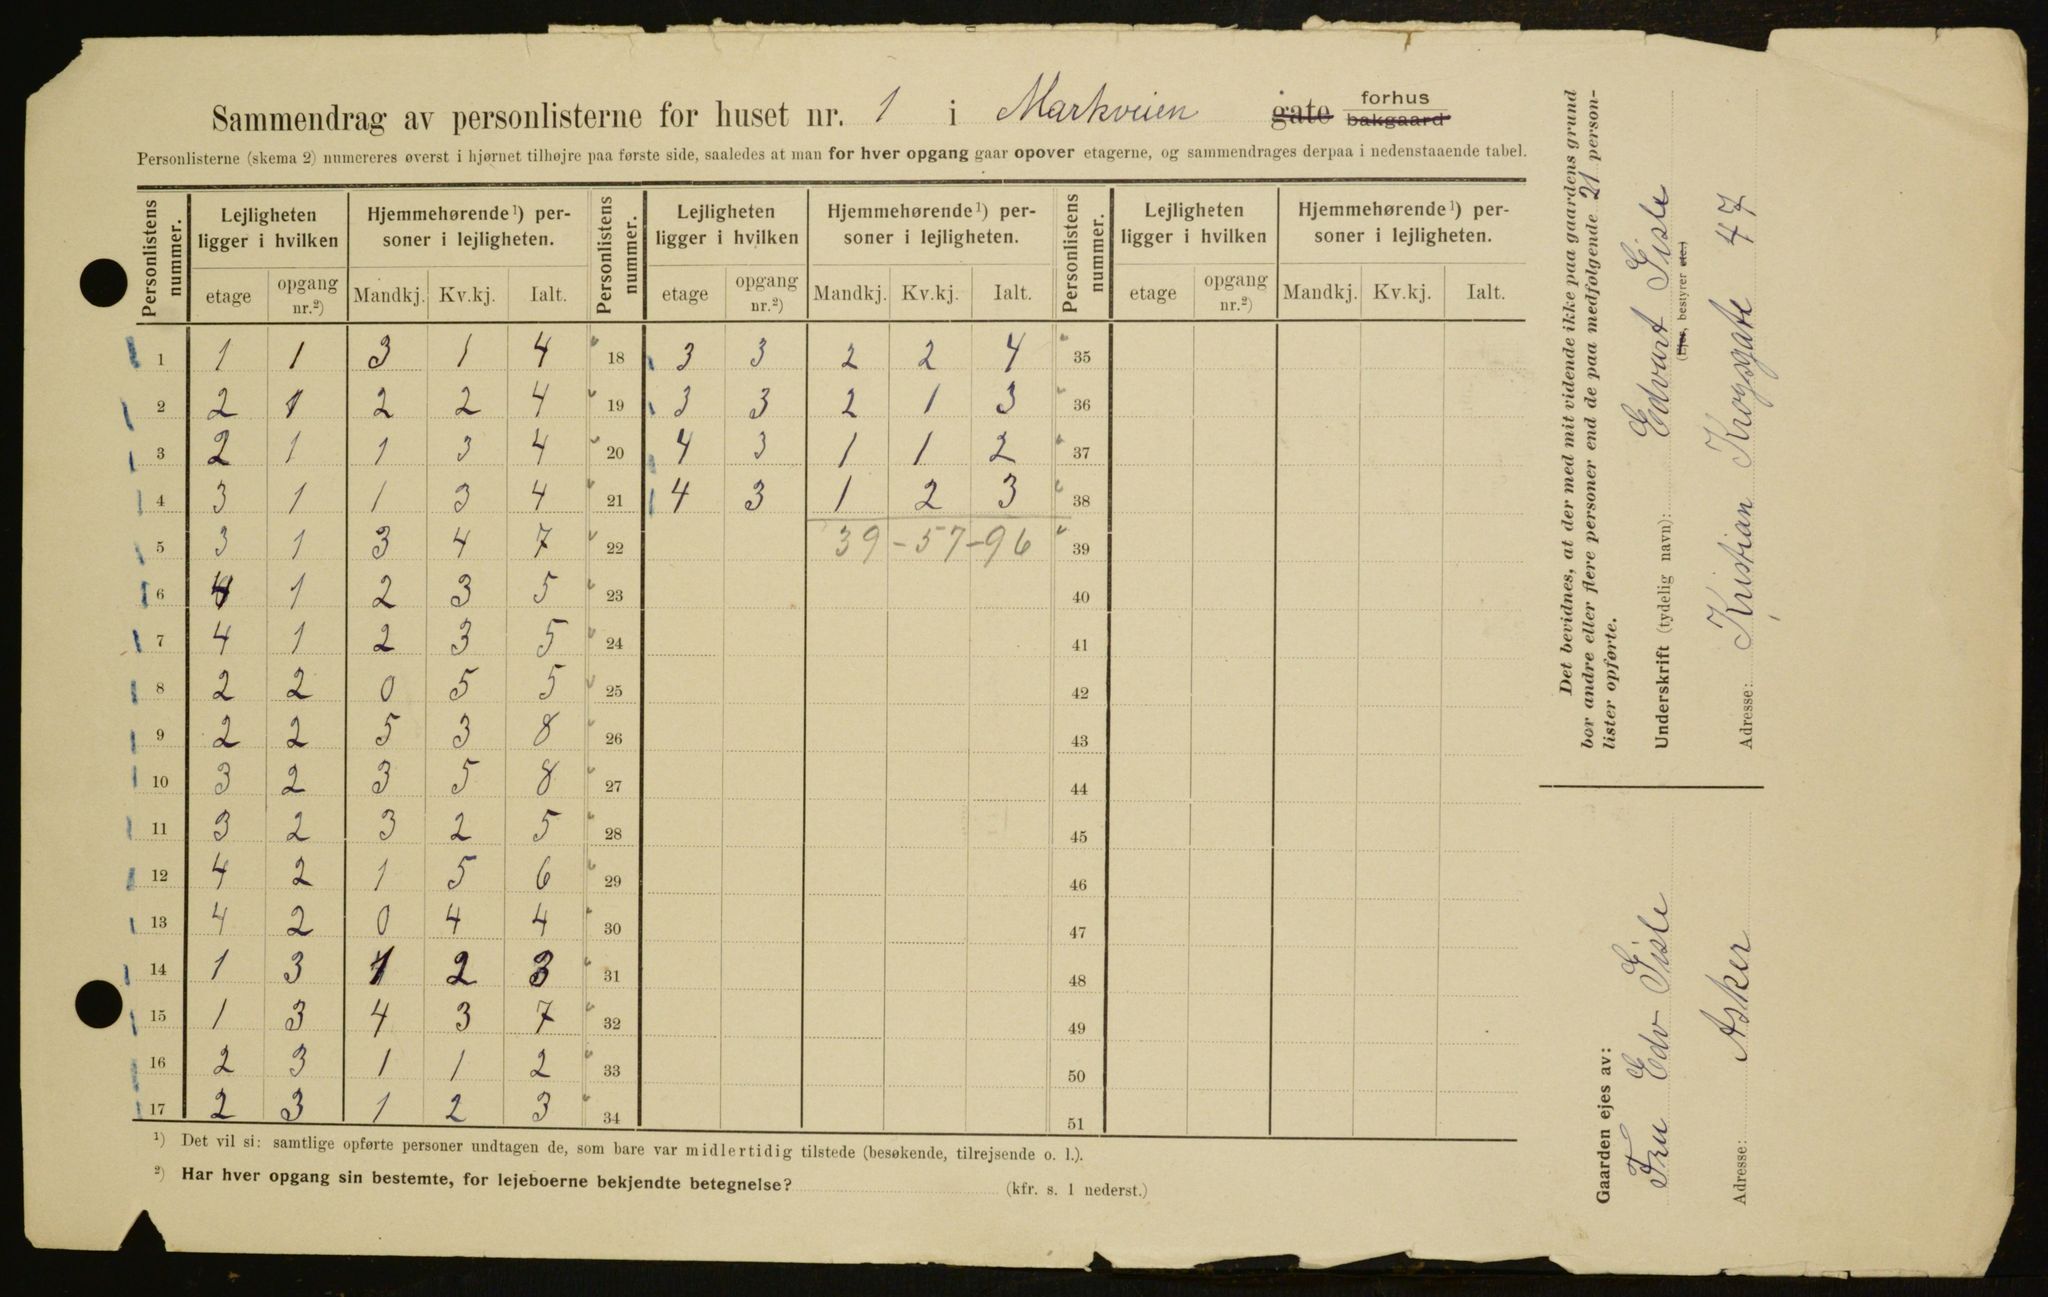 Sammendrag av personlisterne for huset nr. 1 i Markveien gate forhus bakgaard
Personlisterne (skema 2) numereres øverst i hjørnet tilhøjre paa første side, saaledes at man for hver opgang gaar opover etagerne, og sammendrages derpaa i nedenstaaende tabel.
Personlistens nummer. Lejligheten ligger i hvilken Hjemmehørende ¹) personer i lejligheten. Personlistens nummer. Lejligheten ligger i hvilken Hjemmehørende ¹) personer i lejligheten. Personlistens nummer. Lejligheten ligger i hvilken Hjemmehørende ¹) personer i lejligheten.
etage opgang nr.²) Mandkj. Kv.kj. Ialt. etage opgang nr.²) Mandkj. Kv.kj. Ialt. etage opgang nr.²) Mandkj. Kv.kj. Ialt.
1 1 1 3 1 4 18 3 3 2 2 4 35
2 2 1 2 2 4 19 3 3 2 1 3 36
3 2 1 1 3 4 20 4 3 1 1 2 37
4 3 1 1 3 4 21 4 3 1 2 3 38
5 3 1 3 4 7 22 39-57-96 39
6 4 1 2 3 5 23 40
7 4 1 2 3 5 24 41
8 2 2 0 5 5 25 42
9 2 2 5 3 8 26 43
10 3 2 3 5 8 27 44
11 3 2 3 2 5 28 45
12 4 2 1 5 6 29 46
13 4 2 0 4 4 30 47
14 1 3 1 2 3 31 48
15 1 3 4 3 7 32 49
16 2 3 1 1 2 33 50
17 2 3 1 2 3 34 51
¹) Det vil si: samtlige opførte personer undtagen de, som bare var midlertidig tilstede (besøkende, tilrejsende o. l.).
²) Har hver opgang sin bestemte, for lejeboerne bekjendte betegnelse? (kfr. s. 1 nederst.)
Det bevidnes, at der med mit vidende ikke paa gaardens grund
bor andre eller flere personer end de paa medfølgende 21 person-
lister opførte.
Underskrift (tydelig navn): Edvart Gisle
(Ejer, bestyrer etc.)
Adresse: Kristian Krogsgate 47
Gaarden ejes av:
Fru Edv Gisle
Adresse: Asker